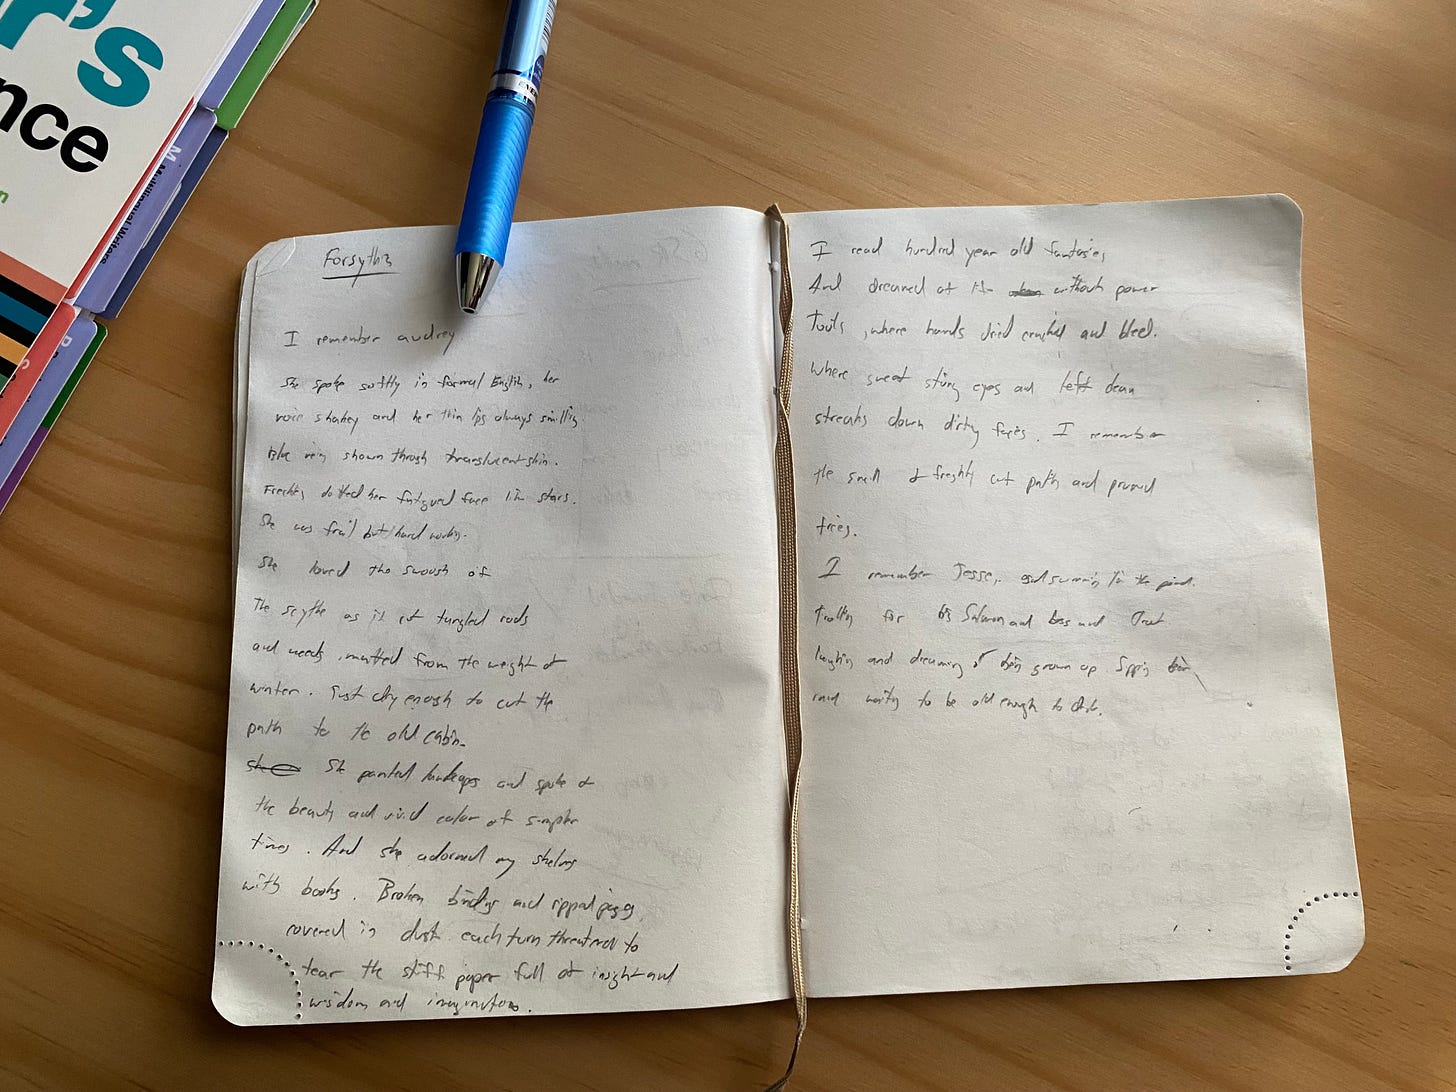 r's
nce
n
M
Multilingual Writers
Forsythia
I remember audrey
She spoke softly in formal English, her
voice shakey and her thin lips always smiling
Blue veins shown through translucent skin.
Freckles dotted her fatigued face like stars.
She was frail but hard working.
She loved the swoosh of
The scythe as it cut tangled
and weeds, matted from the weight of
winter. Just dry enough to cut the
path to the old cabin.
She She painted landscapes and spoke of
the beauty and vivid color of simpler
times. And she adorned my shelves
with books. Broken bindings and ripped pages,
covered in dust each turn threatened to
tear the stiff paper full of insight and
wisdom and imagination.
I read hundred year old fantasies
And dreamed of life without power
Tools, where hands dried cracked and bleed.
Where sweat stung eyes and left clean
streaks down dirty faces. I remember
the smell of freshly cut paths and pruned
trees.
I remember Jesse, and swimming in the pond.
trolling for big Salmon and bass and Trout
laughing and dreaming of being grown up. Sipping
and waiting to be old enough to drink.